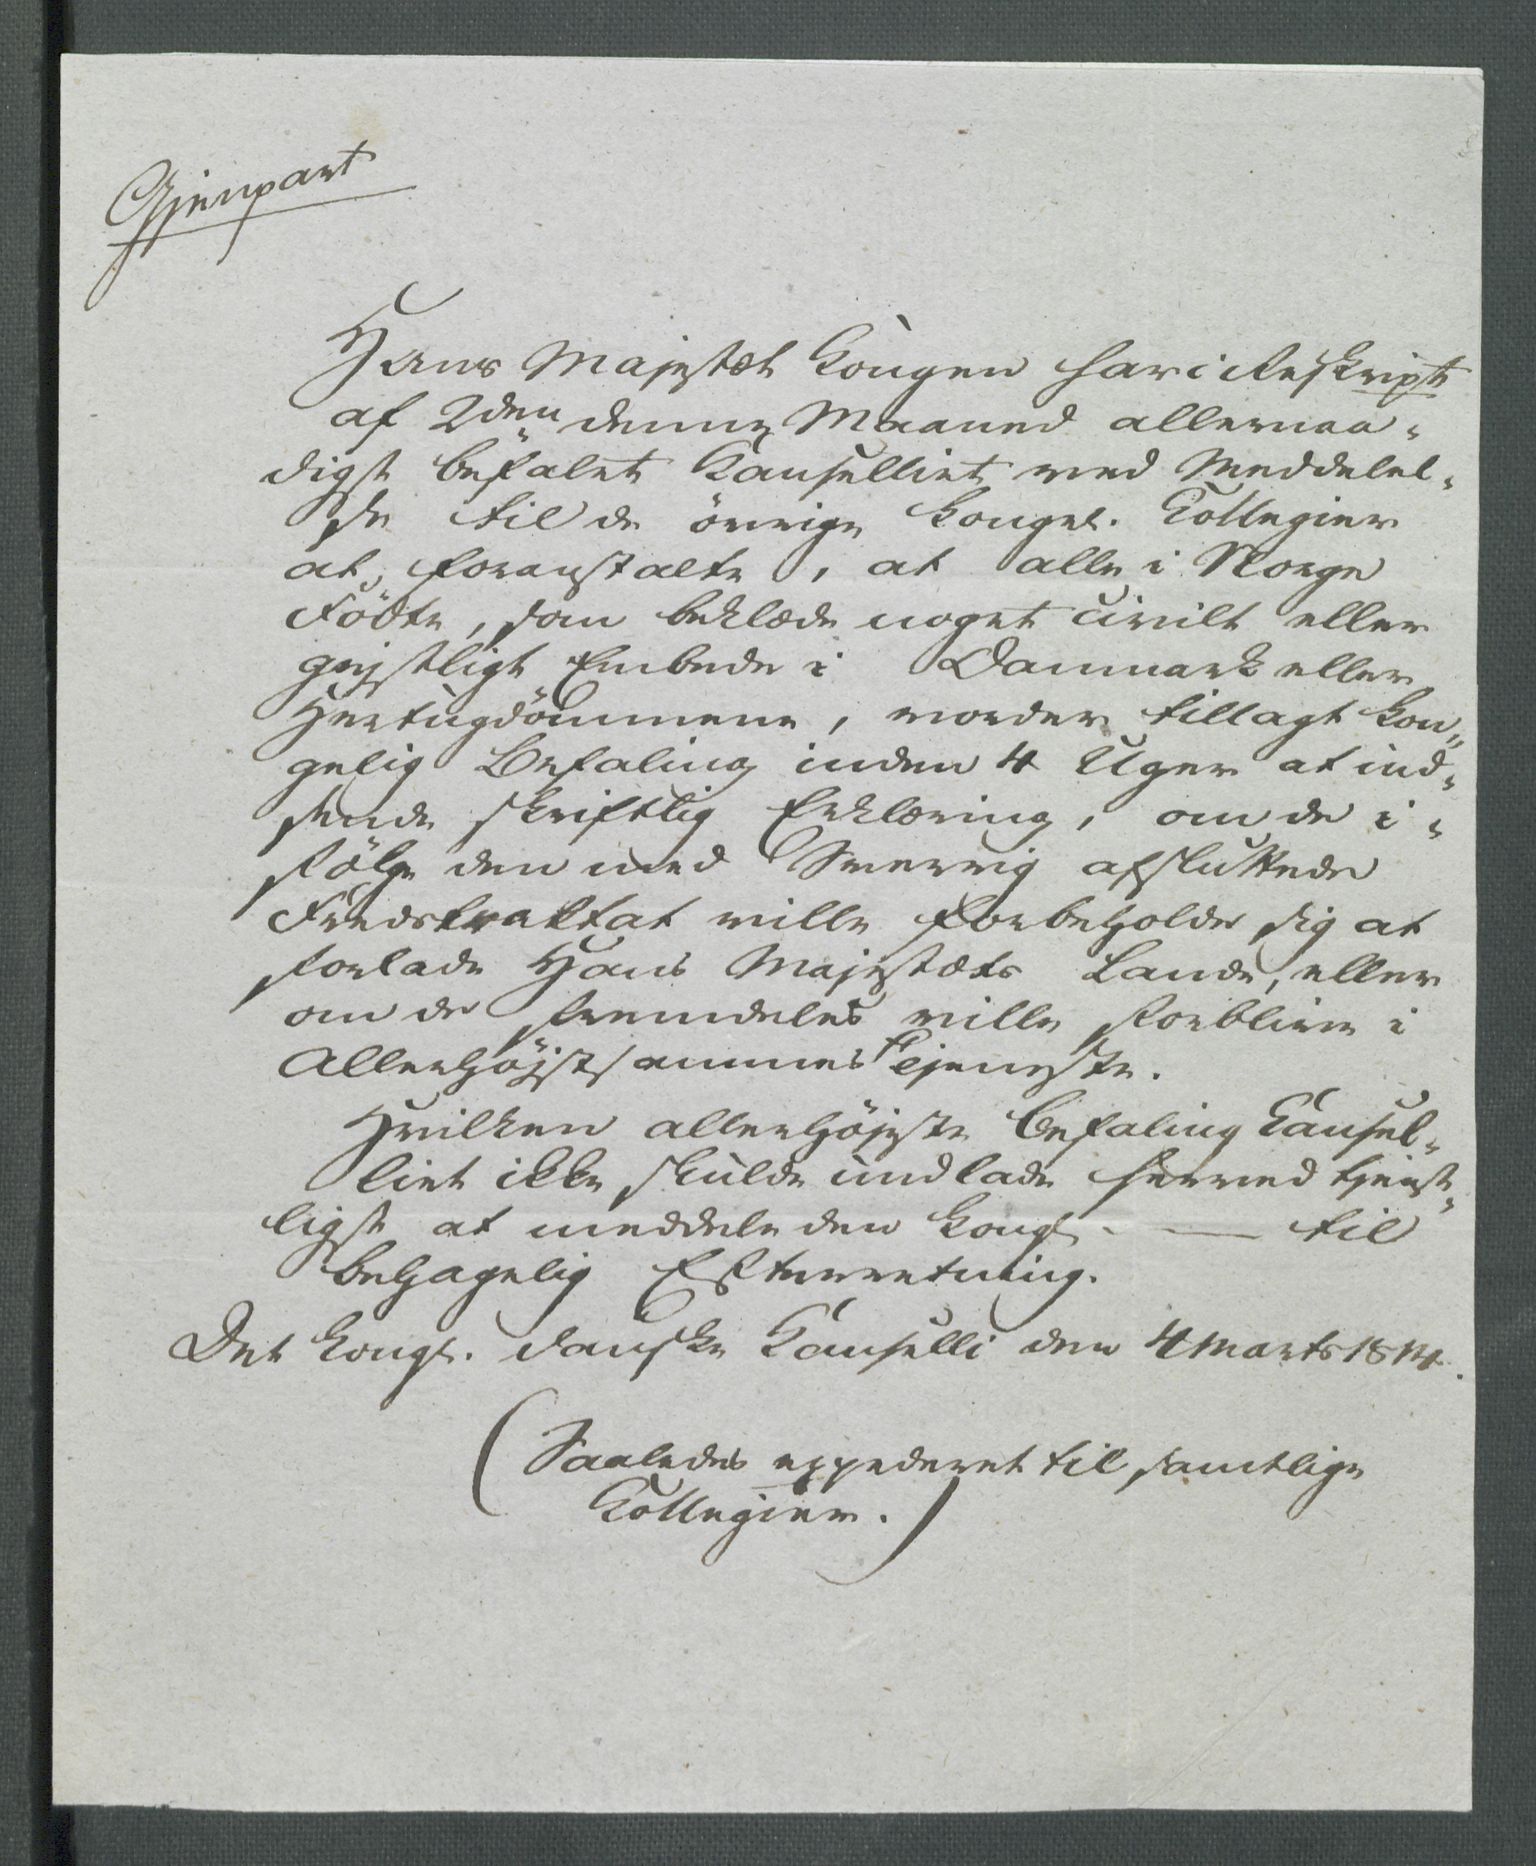 Gjenpart
Hans Majestæt Kongen har i Reskript
af 2den denne Maaned allernaa-
digst befalet Kanselliet ved Meddelel-
se til de övrige kongel. Kollegier
at foranstalte, at alle i Norge
Födte, som beklæde noget civilt eller
gejstligt Embede i Danmark eller
Hertugdömmene, vorder tillagt kon-
gelig Befaling inden 4 Uger at ind-
sende skriftlig Erklæring, om de i-
fölge den med Sverrig afsluttede
Fredstraktat ville forbeholde sig at
forlade Hans Majestæts Lande, eller
om de fremdeles ville forblive i
Allerhöjstsammes Tjeneste.
Hvilken allerhöjeste Befaling Kansel-
liet ikke skulde undlade herved tjenst-
ligst at meddele den kongl. — til
behagelig Efterretning.
Det kongl. danske Kanselli den 4 Marts 1814.
(Saaledes expederet til samtlige
Kollegier.)